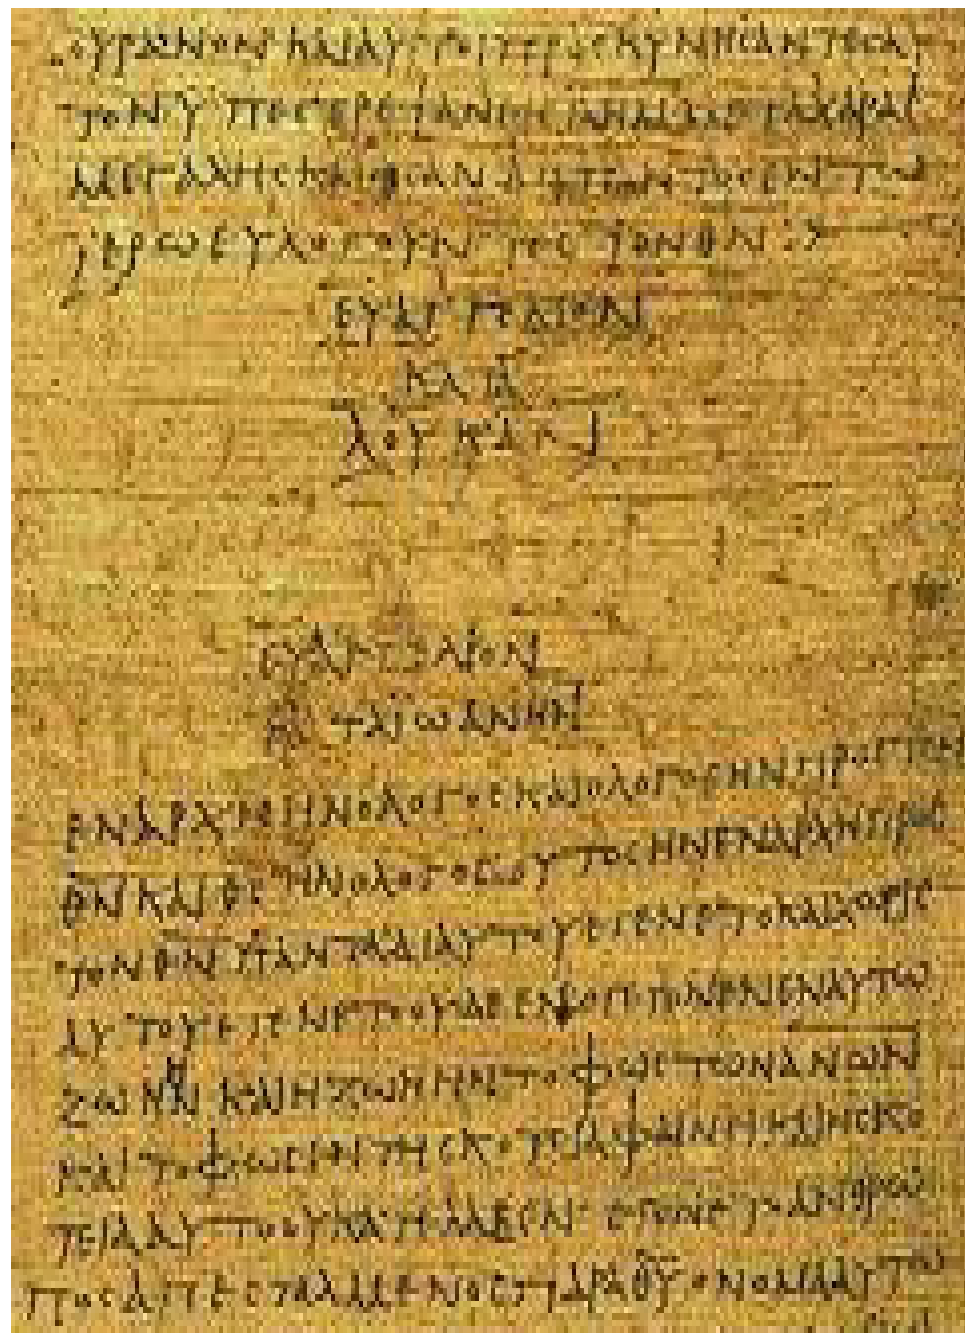 ΟΥΡΑΝΟΝ ΚΑΙ ΑΥΤΟΙ ΠΡΟCΚΥΝΗCΑΝΤΕC ΑΥ
ΤΟΝ ΥΠΕCΤΡΕΨΑΝ ΕΙC ΜΕΤΑ ΧΑΡΑC
ΜΕΓΑΛΗC ΚΑΙ ΗCΑΝ ΔΙΑ ΠΑΝΤΟC ΕΝ ΤΩ
ΙΕΡΩ ΕΥΛΟΓΟΥΝΤΕC ΤΟΝ ΘΝ
ΕΥΑΓΓΕΛΙΟΝ
ΚΑΤΑ
ΛΟΥΚΑΝ
ΕΥΑΓΓΕΛΙΟΝ
ΚΑΤΑ ΪΩΑΝΗΝ
ΕΝ ΑΡΧΗ ΗΝ Ο ΛΟΓΟC ΚΑΙ Ο ΛΟΓΟC ΗΝ ΠΡΟC ΤΟΝ
ΘΝ ΚΑΙ ΘC ΗΝ Ο ΛΟΓΟC ΟΥΤΟC ΗΝ ΕΝ ΑΡΧΗ ΠΡΟC
ΤΟΝ ΘΝ ΠΑΝΤΑ ΔΙ ΑΥΤΟΥ ΕΓΕΝΕΤΟ ΚΑΙ ΧΩΡΙC
ΑΥΤΟΥ ΕΓΕΝΕΤΟ ΟΥΔΕ ΕΝ Ο ΓΕΓΟΝΕΝ ΕΝ ΑΥΤΩ
ΖΩΗ ΗΝ ΚΑΙ Η ΖΩΗ ΗΝ ΤΟ ΦΩC ΤΩΝ ΑΝΩΝ
ΚΑΙ ΤΟ ΦΩC ΕΝ ΤΗ CΚΟΤΕΙΑ ΦΑΙΝΕΙ ΚΑΙ Η CΚΟ
ΤΕΙΑ ΑΥΤΟ ΟΥ ΚΑΤΕΛΑΒΕΝ ΕΓΕΝΕΤΟ ΑΝΘΡΩ
ΠΟC ΑΠΕCΤΑΛΜΕΝΟC ΠΑΡΑ ΘΥ ΟΝΟΜΑ ΑΥΤΩ